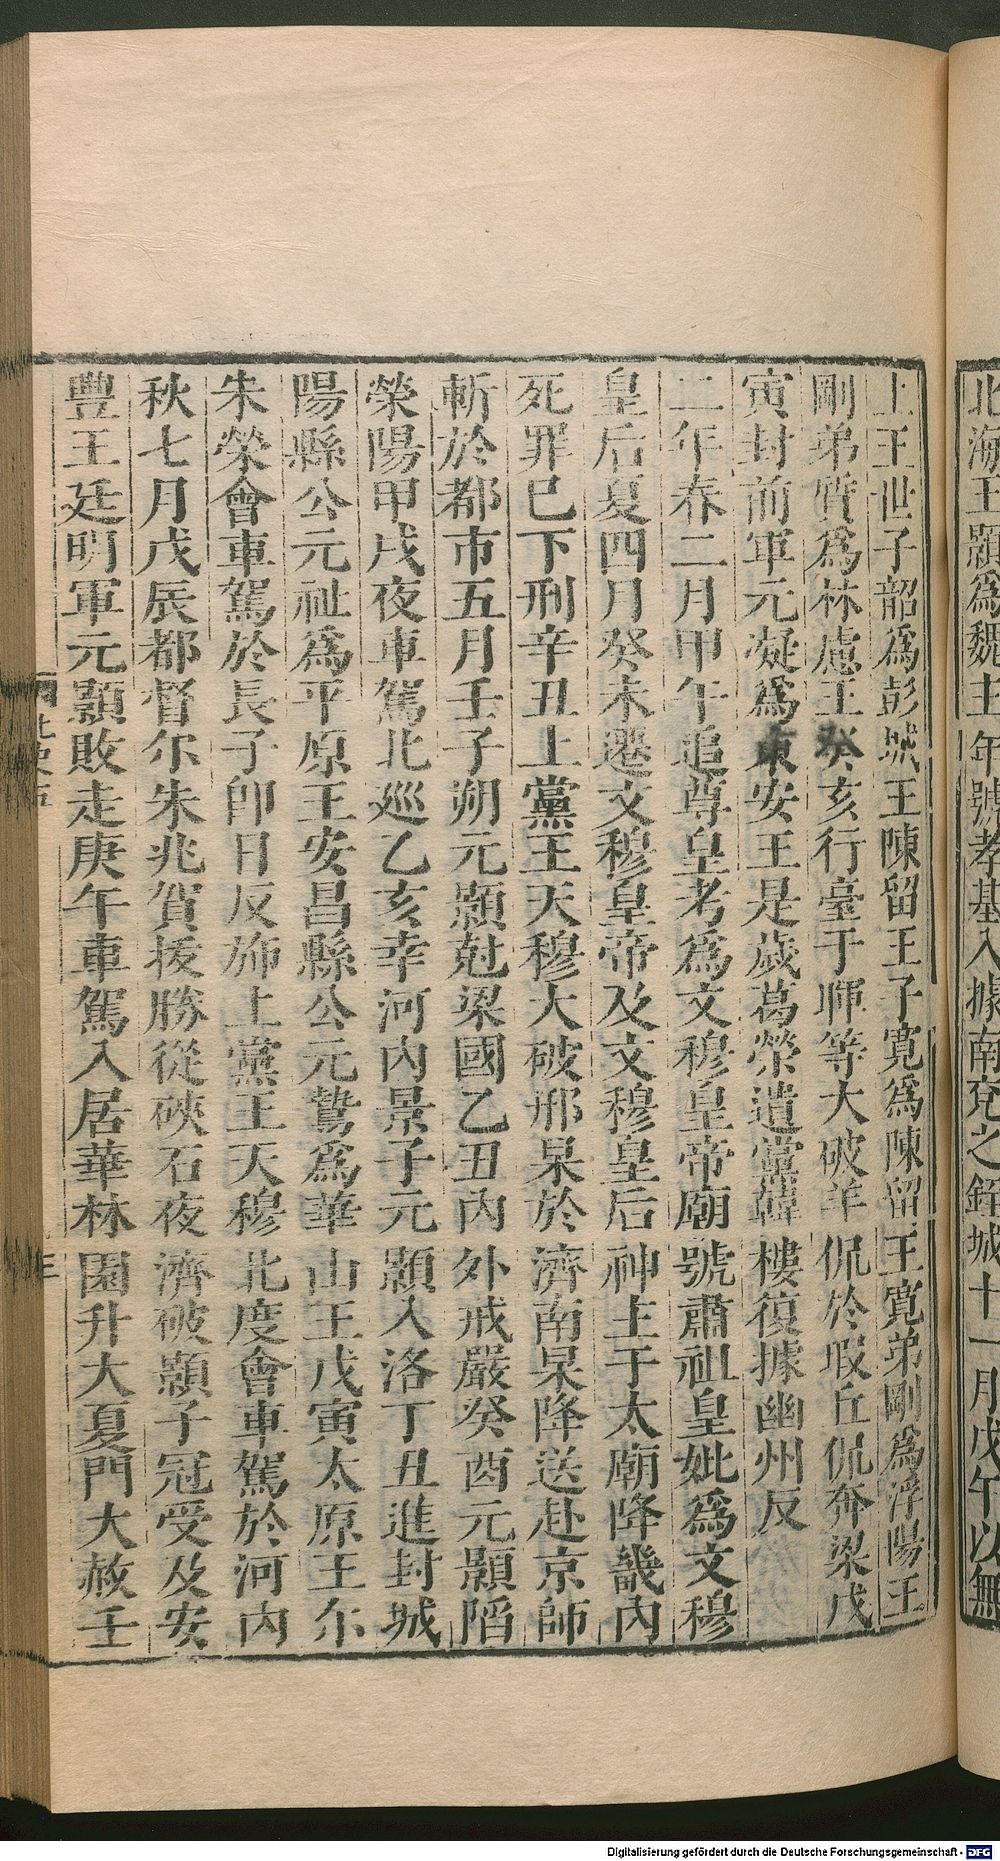 北海王顥爲魏主年號孝基入據南兖之銍城十一月戊午以無
上王世子韶爲彭城王陳留王子寬爲陳留王寬弟剛爲浮陽王
剛弟質爲林慮王癸亥行臺于暉等大破羊侃於瑕丘侃奔梁戊
寅封前軍元凝爲東安王是歲葛榮遺黨韓樓復據幽州反
二年春二月甲午追尊皇考爲文穆皇帝廟號肅祖皇妣爲文穆
皇后夏四月癸未遷文穆皇帝及文穆皇后神主于太廟降畿內
死罪巳下刑辛丑上黨王天穆大破邢杲於濟南杲降送赴京師
斬於都市五月壬子朔元顥尅梁國乙丑內外戒嚴癸酉元顥陷
榮陽甲戌夜車駕北巡乙亥幸河內景子元顥入洛丁丑進封城
陽縣公元祉爲平原王安昌縣公元鷙爲華山王戊寅太原王尔
朱榮會車駕於長子卽日反斾上黨王天穆北度會車駕於河內
秋七月戊辰都督尔朱兆賀拔勝從硤石夜濟破顥子冠受及安
豐王廷明軍元顥敗走庚午車駕入居華林園升大夏門大赦壬
Digitalisierung gefördert durch die Deutsche Forschungsgemeinschaft - DFG